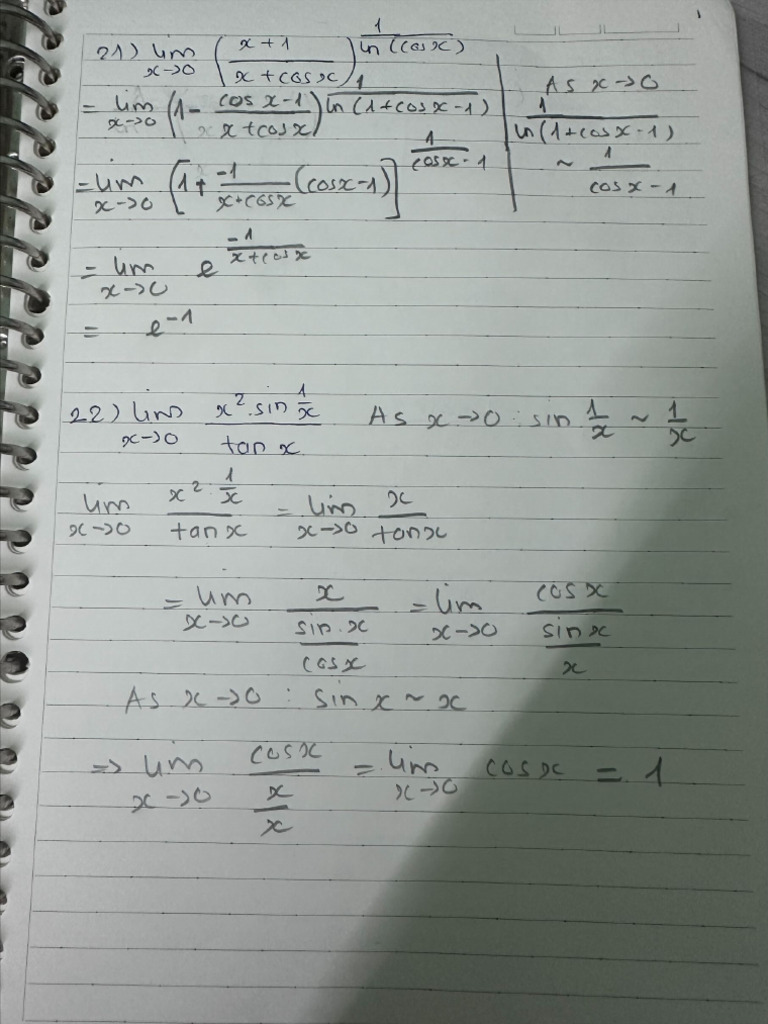 21) lim x→0 ((x+1)/(x+cosx))^(1/ln(cosx))
= lim x→0 (1 - (cosx-1)/(x+cosx))^(1/ln(1+cosx-1))
As x→0
1/ln(1+cosx-1)
~ 1/(cosx-1)
= lim x→0 [1 + (-1)/(x+cosx) (cosx-1)]^(1/(cosx-1))
= lim x→0 e^(-1/(x+cosx))
= e^-1
22) lim x→0 (x² · sin 1/x)/(tan x) As x→0 : sin 1/x ~ 1/x
lim x→0 (x² · 1/x)/(tan x) = lim x→0 x/(tan x)
= lim x→0 x/(sin x/cos x) = lim x→0 cosx/(sin x/x)
As x→0 : sin x ~ x
=> lim x→0 cosx/(x/x) = lim x→0 cosx = 1